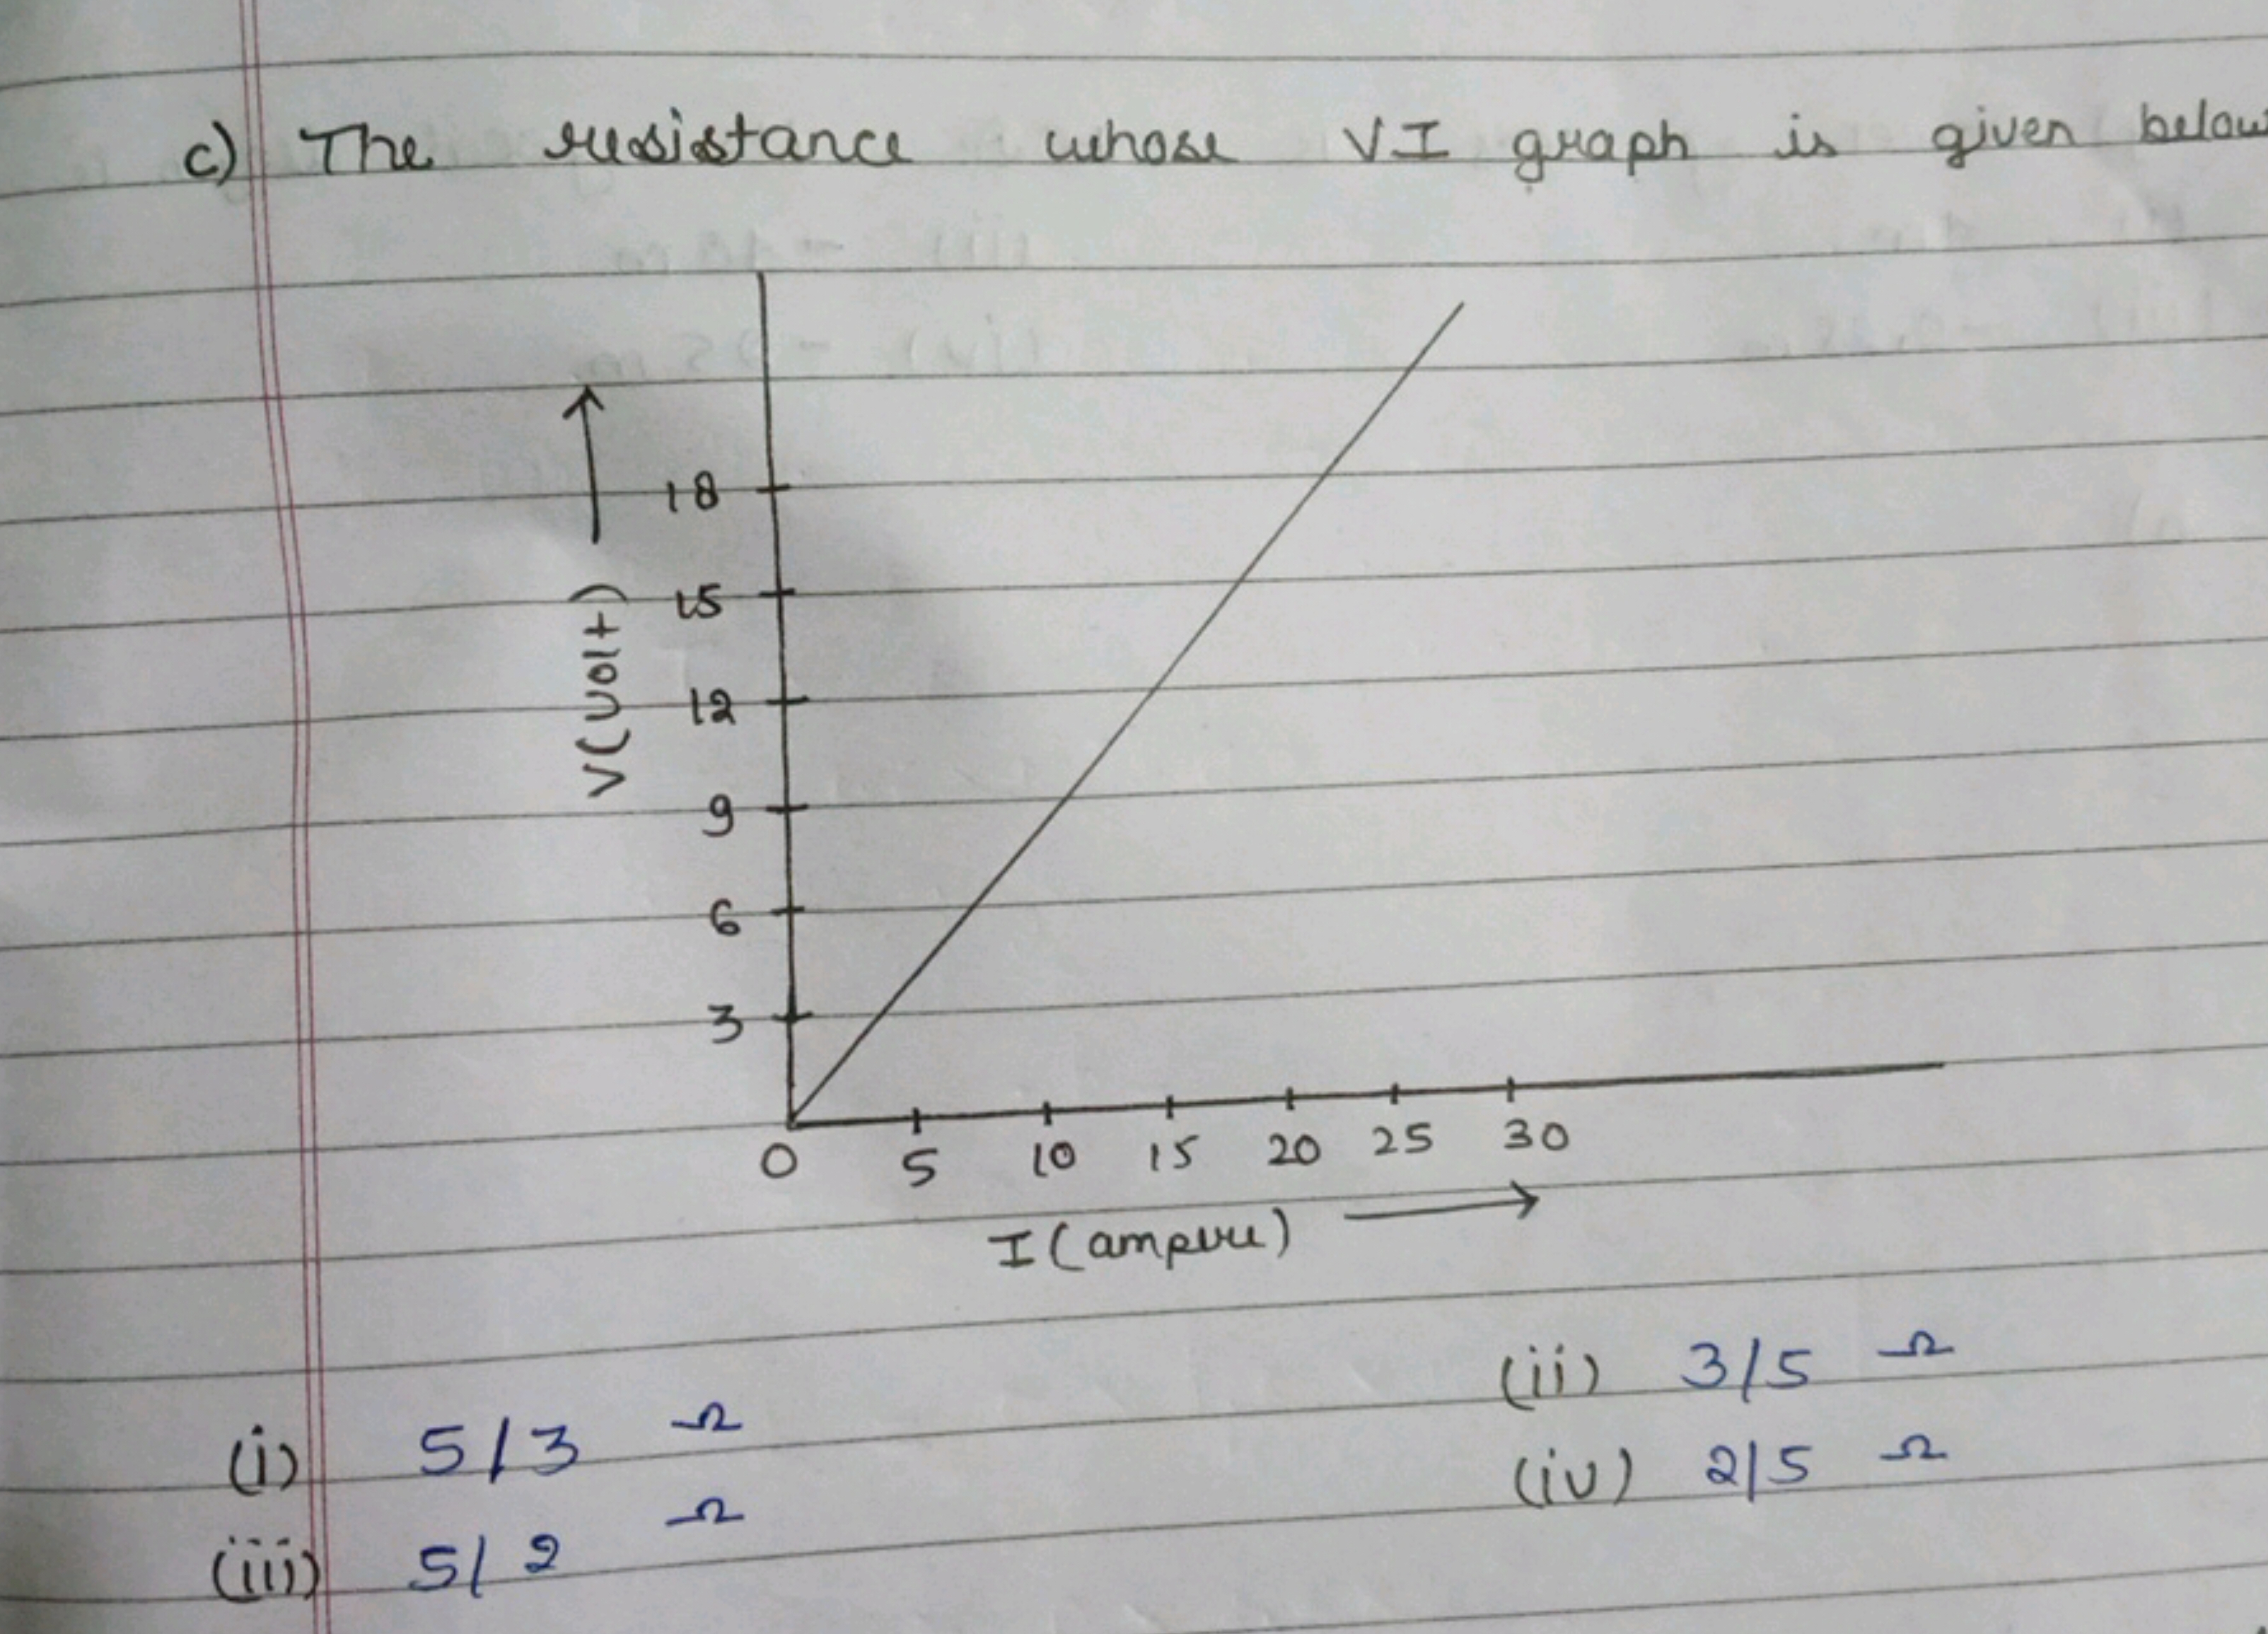 c) The resistance whose VI graph is given below
V(volt)
18
15
12
9
6
3
0 5 10 15 20 25 30
I(ampere)
(i) 5/3 Ω (ii) 3/5 Ω
(iii) 5/2 Ω (iv) 2/5 Ω